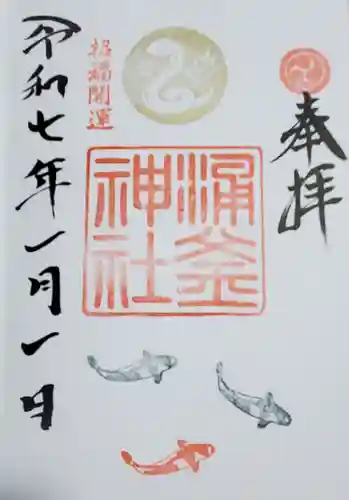 奉拝
涌釜
神社
招福開運
令和七年一月一日